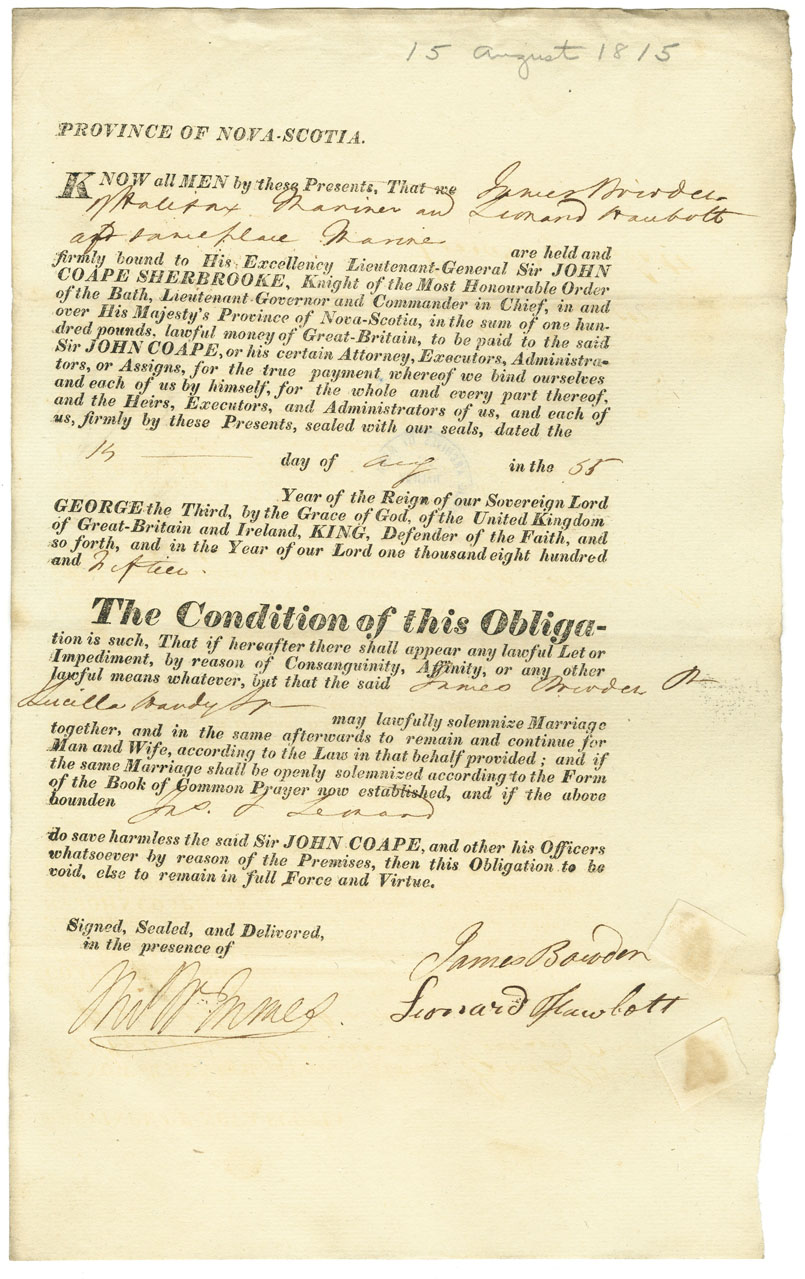 15 August 1815
PROVINCE OF NOVA-SCOTIA.
KNOW all MEN by these Presents, That we James Bowden
of Halifax Mariner and Leonard Hawbott
of same place Mariner
are held and
firmly bound to His Excellency Lieutenant-General Sir JOHN
COAPE SHERBROOKE, Knight of the Most Honourable Order
of the Bath, Lieutenant-Governor and Commander in Chief, in and
over His Majesty's Province of Nova-Scotia, in the sum of one hun-
dred pounds, lawful money of Great-Britain, to be paid to the said
Sir JOHN COAPE, or his certain Attorney, Executors, Administra-
tors, or Assigns, for the true payment whereof we bind ourselves
and each of us by himself, for the whole and every part thereof,
and the Heirs, Executors, and Administrators of us, and each of
us, firmly by these Presents, sealed with our seals, dated the
15 day of Aug in the 55
Year of the Reign of our Sovereign Lord
GEORGE the Third, by the Grace of God, of the United Kingdom
of Great-Britain and Ireland, KING, Defender of the Faith, and
so forth, and in the Year of our Lord one thousand eight hundred
and Fifteen.
The Condition of this Obliga-
tion is such, That if hereafter there shall appear any lawful Let or
Impediment, by reason of Consanguinity, Affinity, or any other
lawful means whatever, but that the said James Bowden &
Lucilla Handy Sp
may lawfully solemnize Marriage
together, and in the same afterwards to remain and continue for
Man and Wife, according to the Law in that behalf provided; and if
the same Marriage shall be openly solemnized according to the Form
of the Book of Common Prayer now established, and if the above
bounden Jas. & Leonard
do save harmless the said Sir JOHN COAPE, and other his Officers
whatsoever by reason of the Premises, then this Obligation to be
void, else to remain in full Force and Virtue.
Signed, Sealed, and Delivered,
in the presence of
James Bowden
Leonard Hawbott